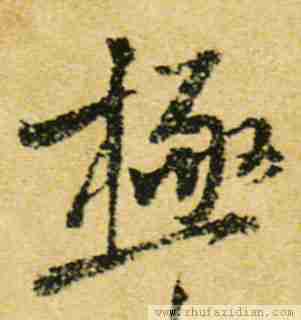 極
www.zhufazidian.com